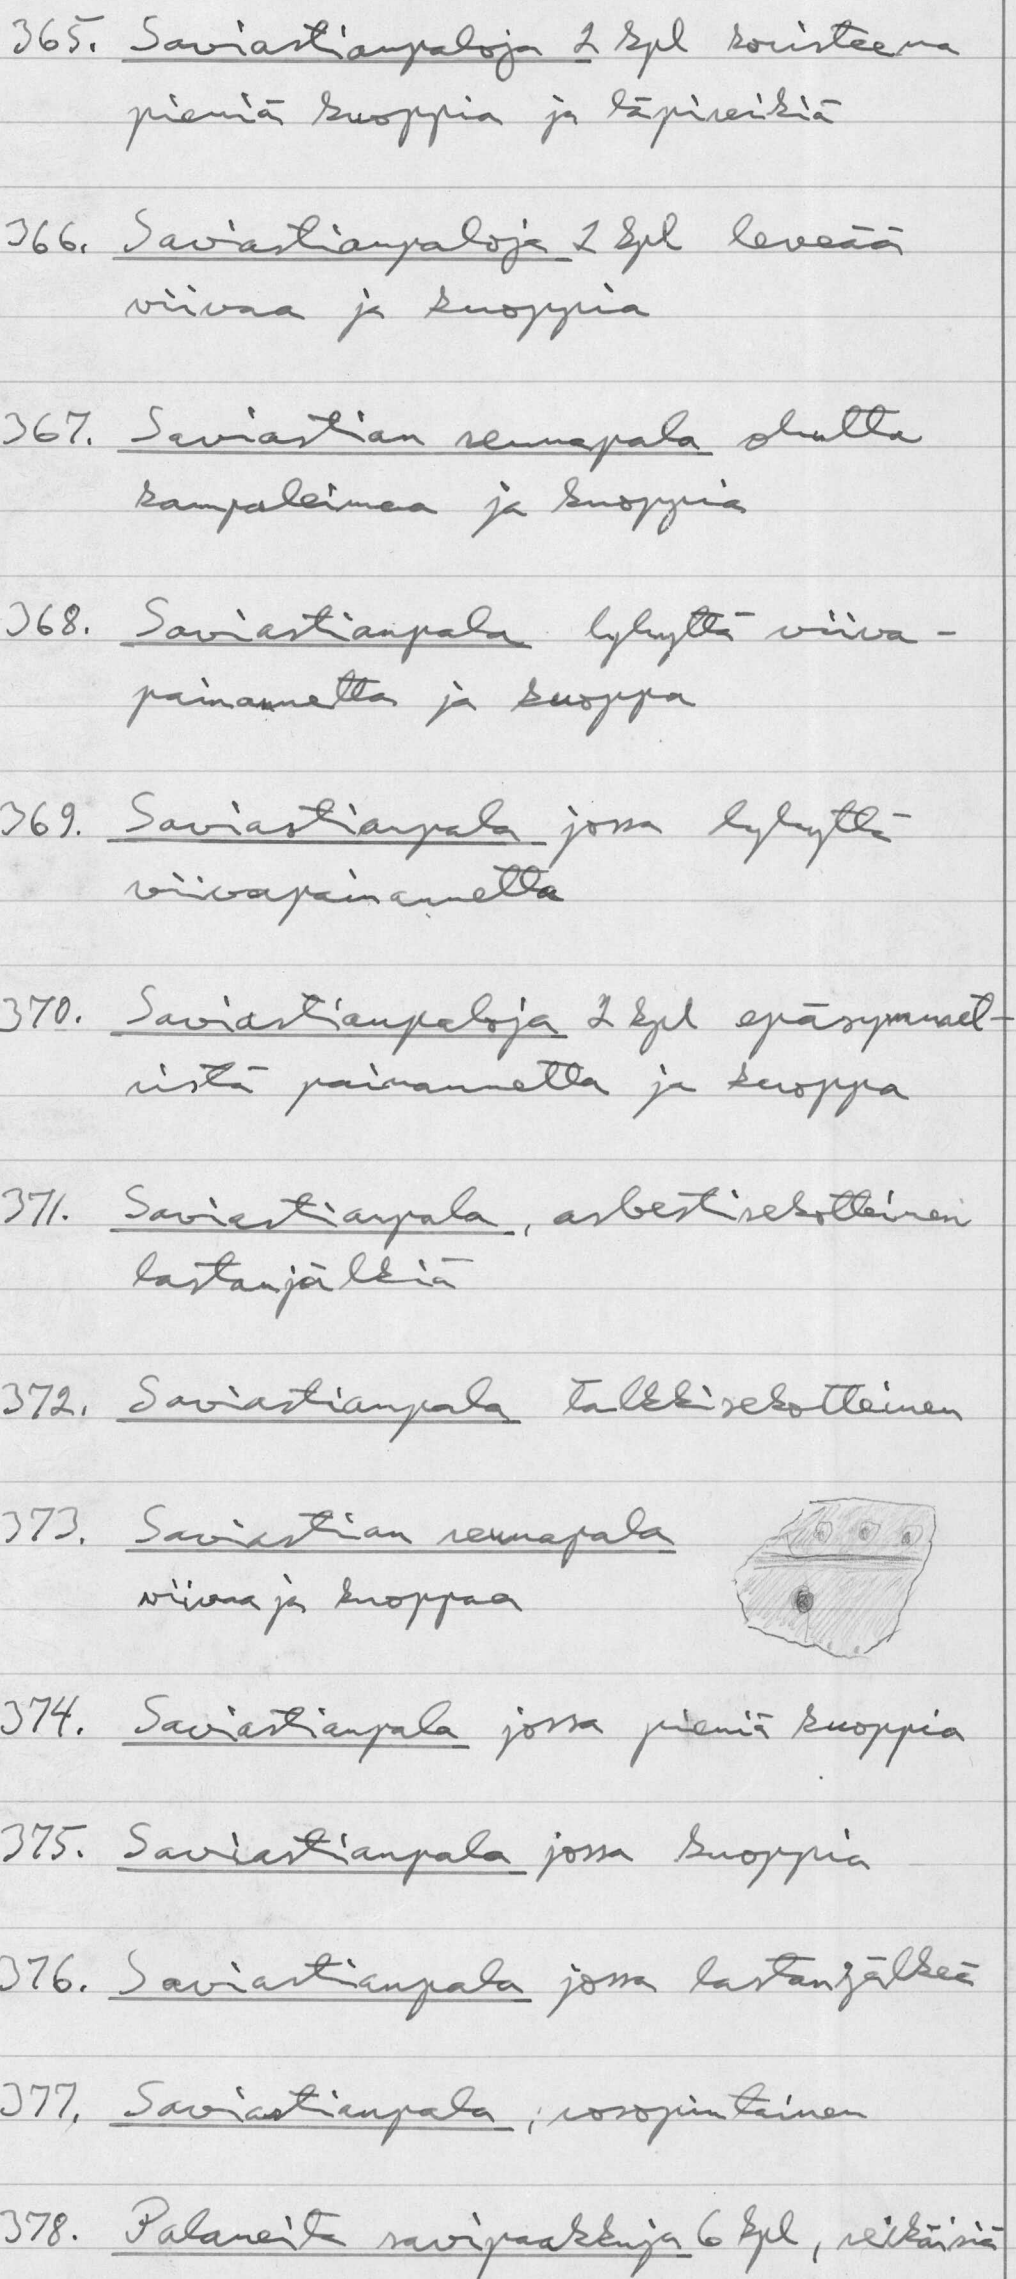 365. Saviastianpaloja 2 kpl koristeena
pieniä kuoppia ja läpireikiä
366. Saviastianpaloja 2 kpl leveää
viivaa ja kuoppia
367. Saviastian reunapala ohutta
kampaleimaa ja kuoppia
368. Saviastianpala lyhyttä viiva-
painannetta ja kuoppa
369. Saviastianpala jossa lyhyttä
viivapainannetta
370. Saviastianpaloja 2 kpl epäsymmet-
ristä painannetta ja kuoppa
371. Saviastianpala, asbestisekotteinen
lastanjälkiä
372. Saviastianpala talkkisekotteinen
373. Saviastian reunapala
viivaa ja kuoppaa
374. Saviastianpala jossa pieniä kuoppia
375. Saviastianpala jossa kuoppia
376. Saviastianpala jossa lastanjälkeä
377. Saviastianpala, rosopintainen
378. Palaneita savipaakkuja 6 kpl, reikäisiä